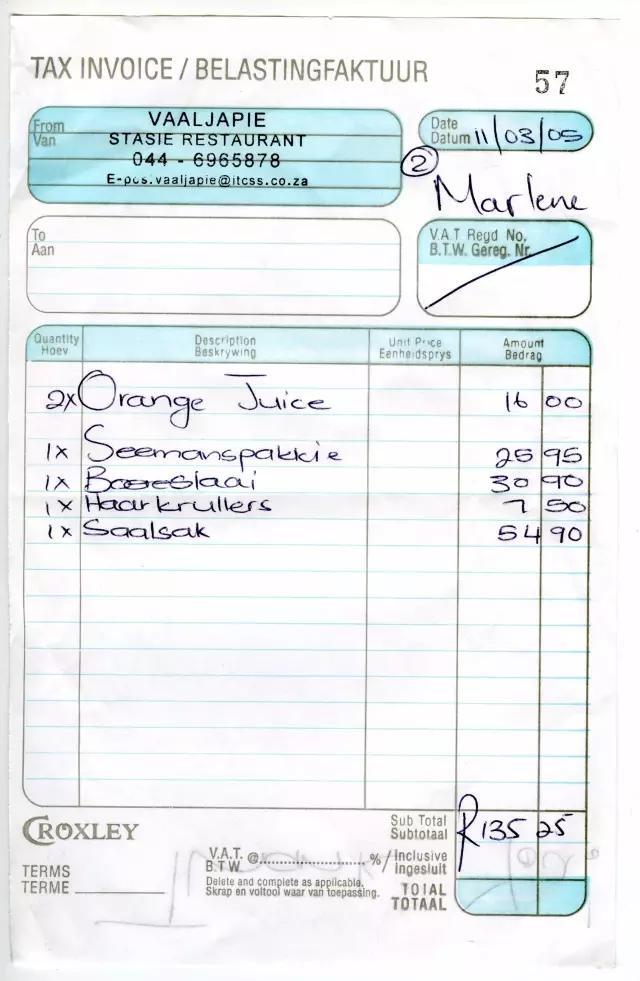 TAX INVOICE / BELASTINGFAKTUUR
57
From
Van
VAALJAPIE
STASIE RESTAURANT
044 - 6965878
E-pos.vaaljapie@itcss.co.za
Date
Datum 11/03/05
2
Marlene
To
Aan
V.A.T Regd No.
B.T.W. Gereg. Nr.
Quantity Description Unit Price Amount
Hoev Beskrywing Eenheidsprys Bedrag
2x Orange Juice 16 00
1x Seemanspakkie 25 95
1x Boereslaai 30 90
1x Haarkrullers 7 50
1x Saalsak 54 90
CROXLEY
Sub Total
Subtotaal
R135 25
V.A.T. @..................% / Inclusive
B.T.W. Ingesluit
TERMS
TERME
Delete and complete as applicable.
Skrap en voltooi waar van toepassing.
TOTAL
TOTAAL